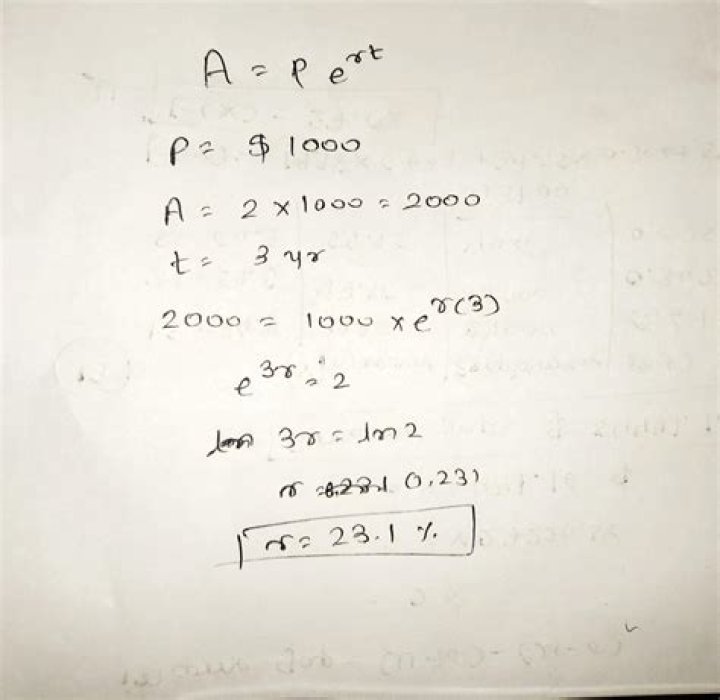 A = P e^rt
P = $ 1000
A = 2 × 1000 = 2000
t = 3 yr
2000 = 1000 × e^r(3)
e^3r = 2
3r = ln 2
r = 0.231
r = 23.1 %